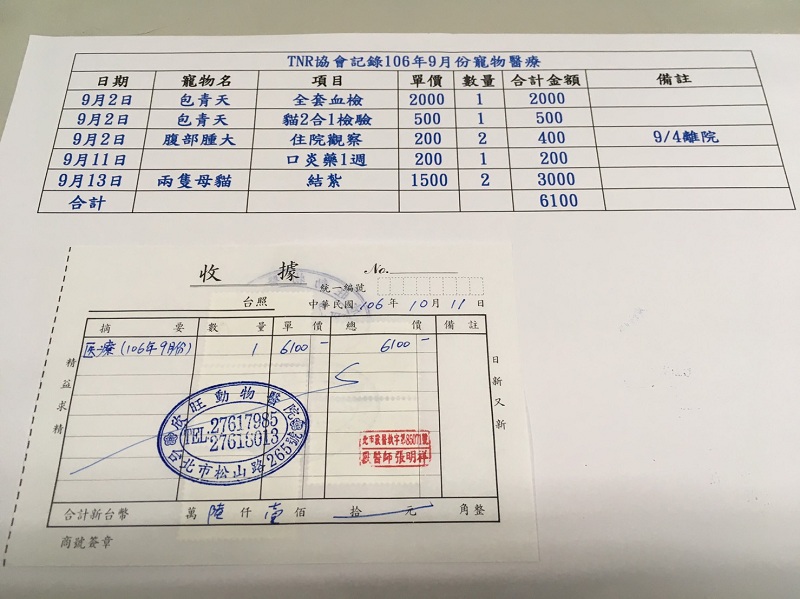 TNR協會記錄106年9月份寵物醫療
日期 寵物名 項目 單價 數量 合計金額 備註
9月2日 包青天 全套血檢 2000 1 2000
9月2日 包青天 貓2合1檢驗 500 1 500
9月2日 腹部腫大 住院觀察 200 2 400 9/4離院
9月11日 口炎藥1週 200 1 200
9月13日 兩隻母貓 結紮 1500 2 3000
合計 6100
收據 No.
統一編號
台照 中華民國106年10月11日
摘要 數量 單價 總價 備註
医療(106年9月份) 1 6100- 6100-
精益求精
日新又新
欣旺動物醫院
TEL:27617985
27616013
台北市松山路265號
獸醫師張明祥
合計新台幣 萬陸仟壹佰拾元角整
商號簽章